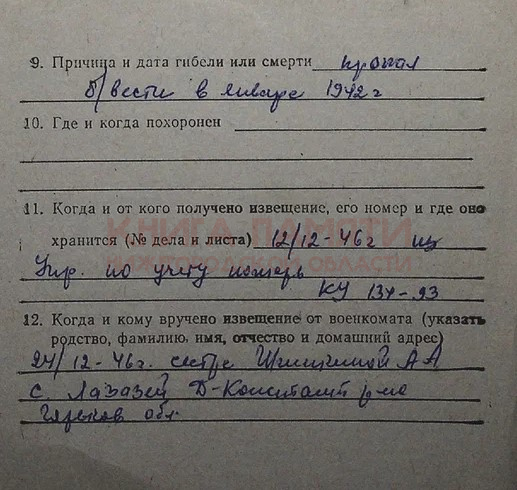 9. Причина и дата гибели или смерти пропал
б/вести в январе 1942 г
10. Где и когда похоронен
11. Когда и от кого получено извещение, его номер и где оно
КНИГА ПАМЯТИ
хранится (№ дела и листа) 12/12-46 г из
НИЖЕГОРОДСКОЙ ОБЛАСТИ
Упр. по учету потерь
КУ 134-93
12. Когда и кому вручено извещение от военкомата (указать
родство, фамилию, имя, отчество и домашний адрес)
24/12-46 г. сестре А А
с. Лазазей Д-Констант р-на
Горьков обл.